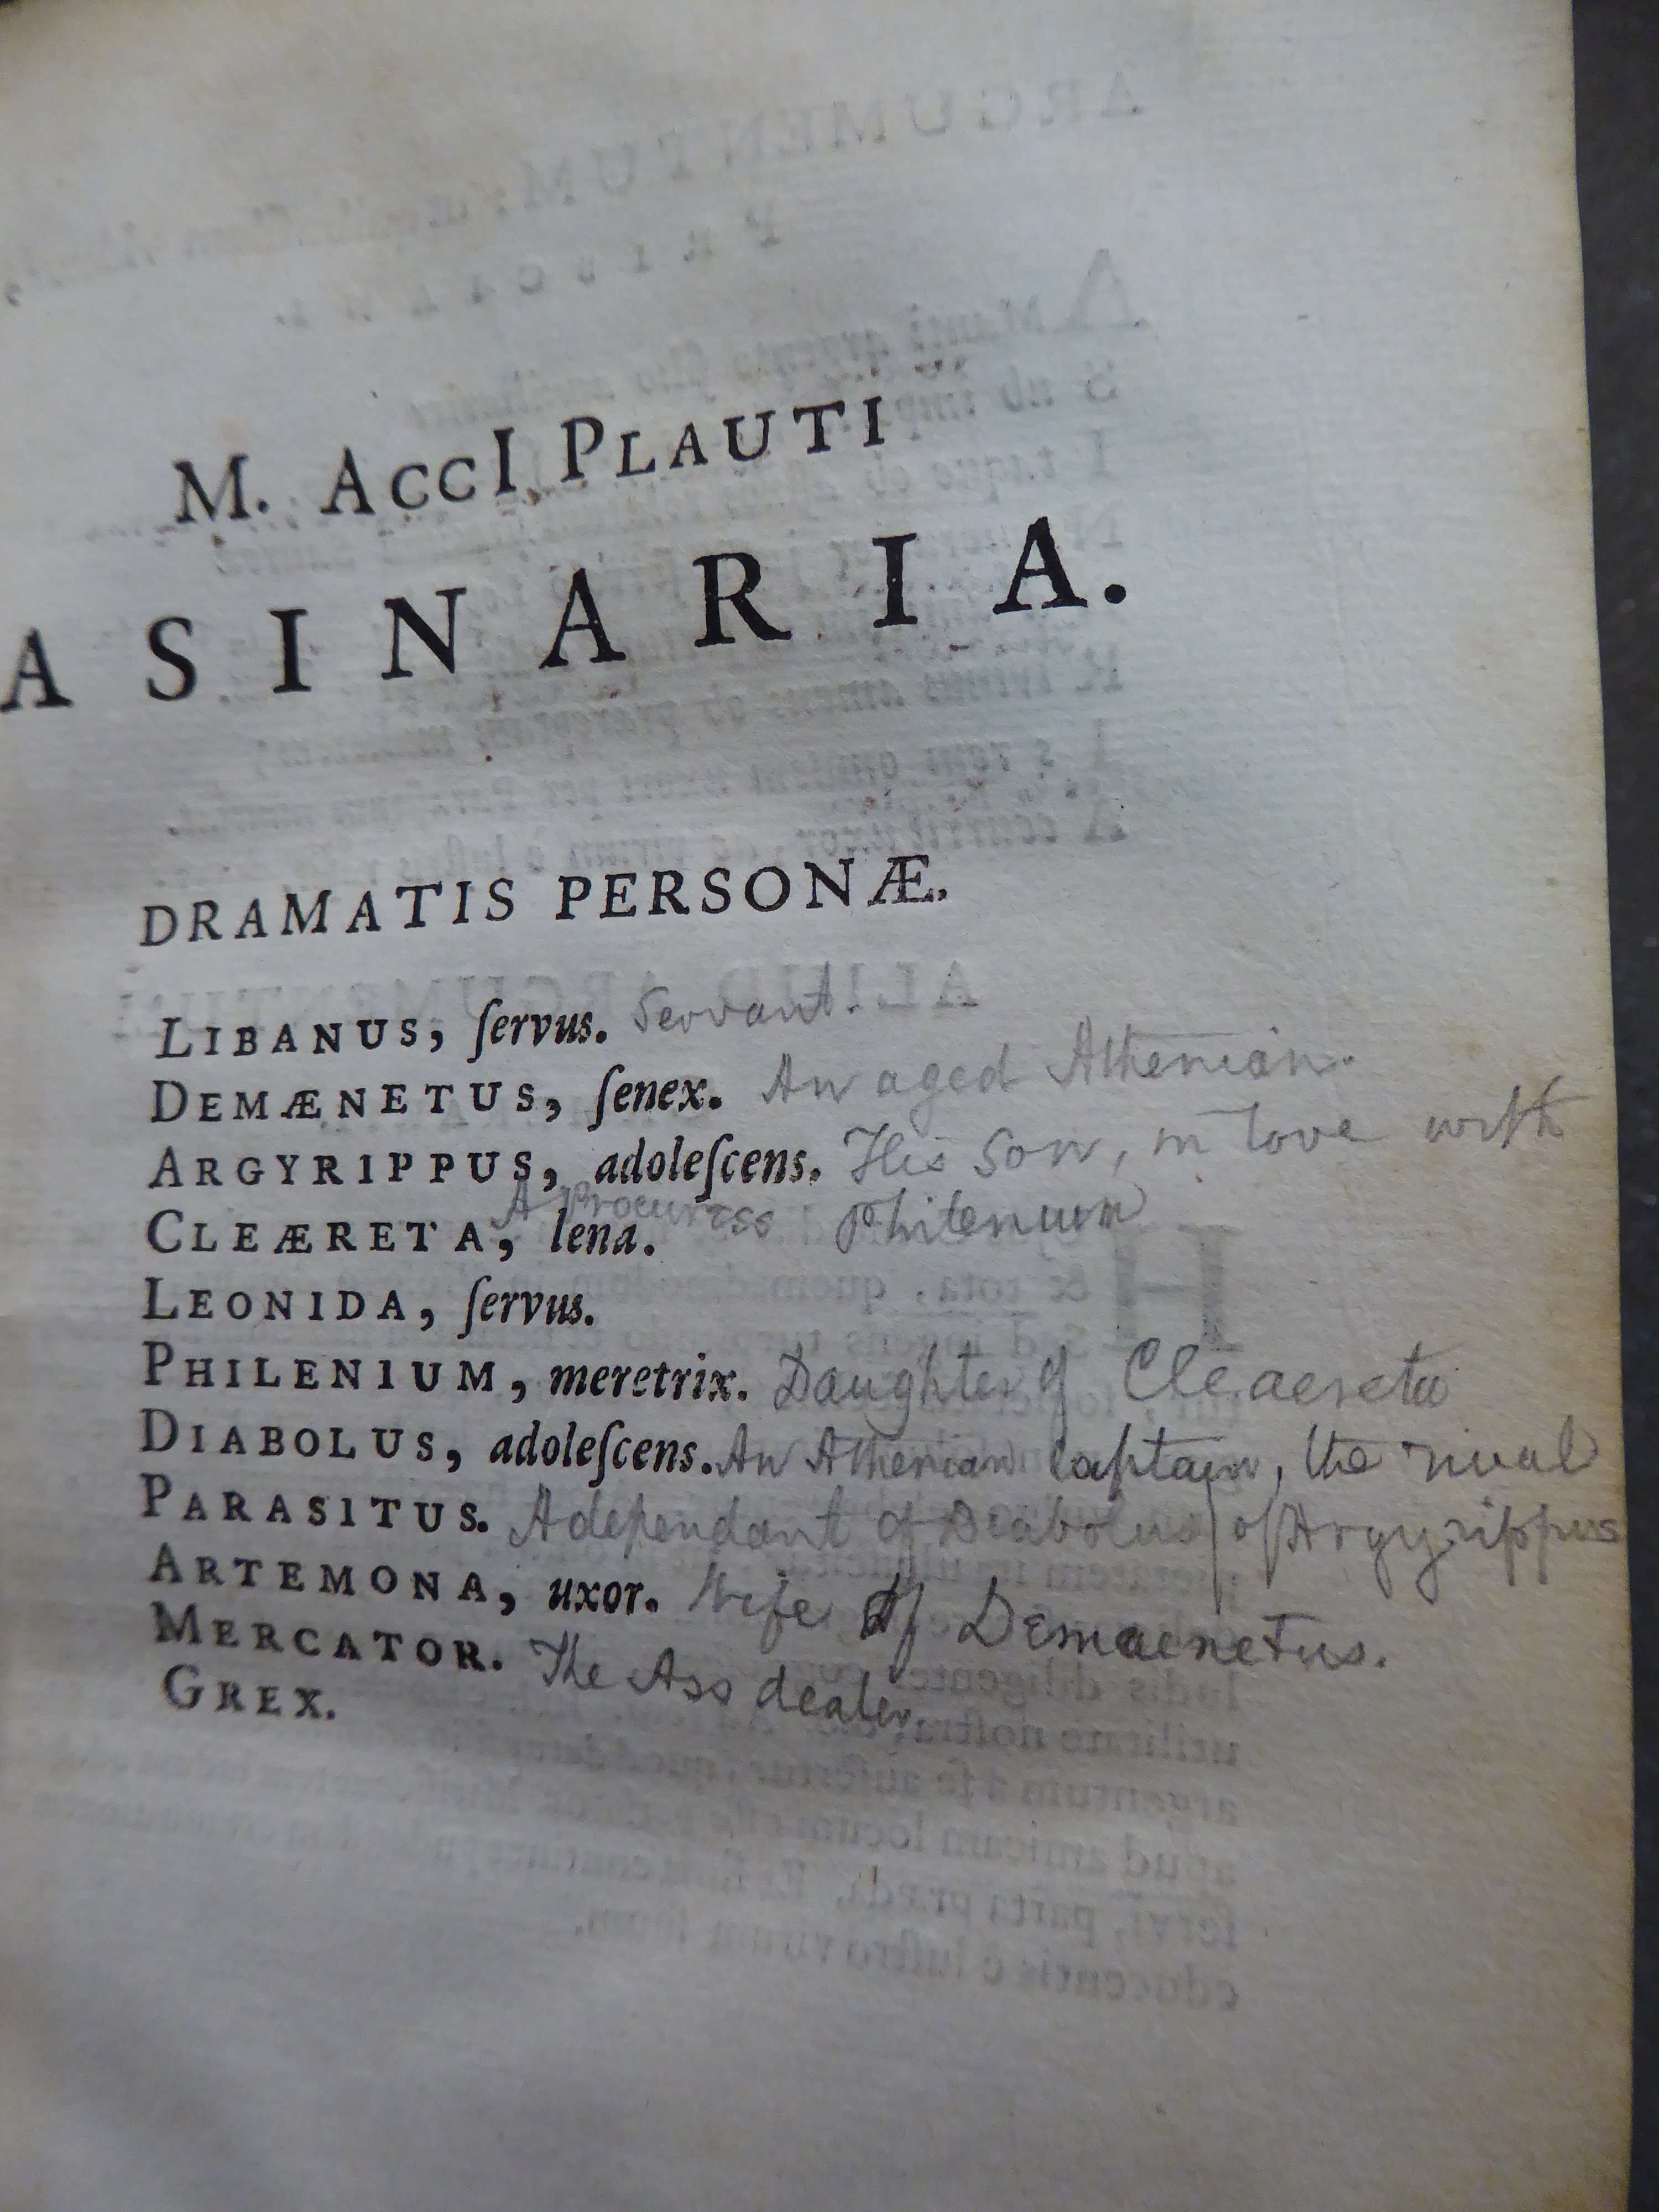 M. AccI PLAUTI
ASINARIA.
DRAMATIS PERSONÆ.
LIBANUS, ſervus. Servant.
DEMÆNETUS, ſenex. An aged Athenian.
ARGYRIPPUS, adoleſcens. His Son, in love with
A Procuress Philenium
CLEÆRETA, lena.
LEONIDA, ſervus.
PHILENIUM, meretrix. Daughter of Cleaereta
DIABOLUS, adoleſcens. An Athenian Captain, the rival
of Argyrippus
PARASITUS. A dependant of Diabolus
ARTEMONA, uxor. Wife of Demaenetus.
MERCATOR. The Ass dealer.
GREX.